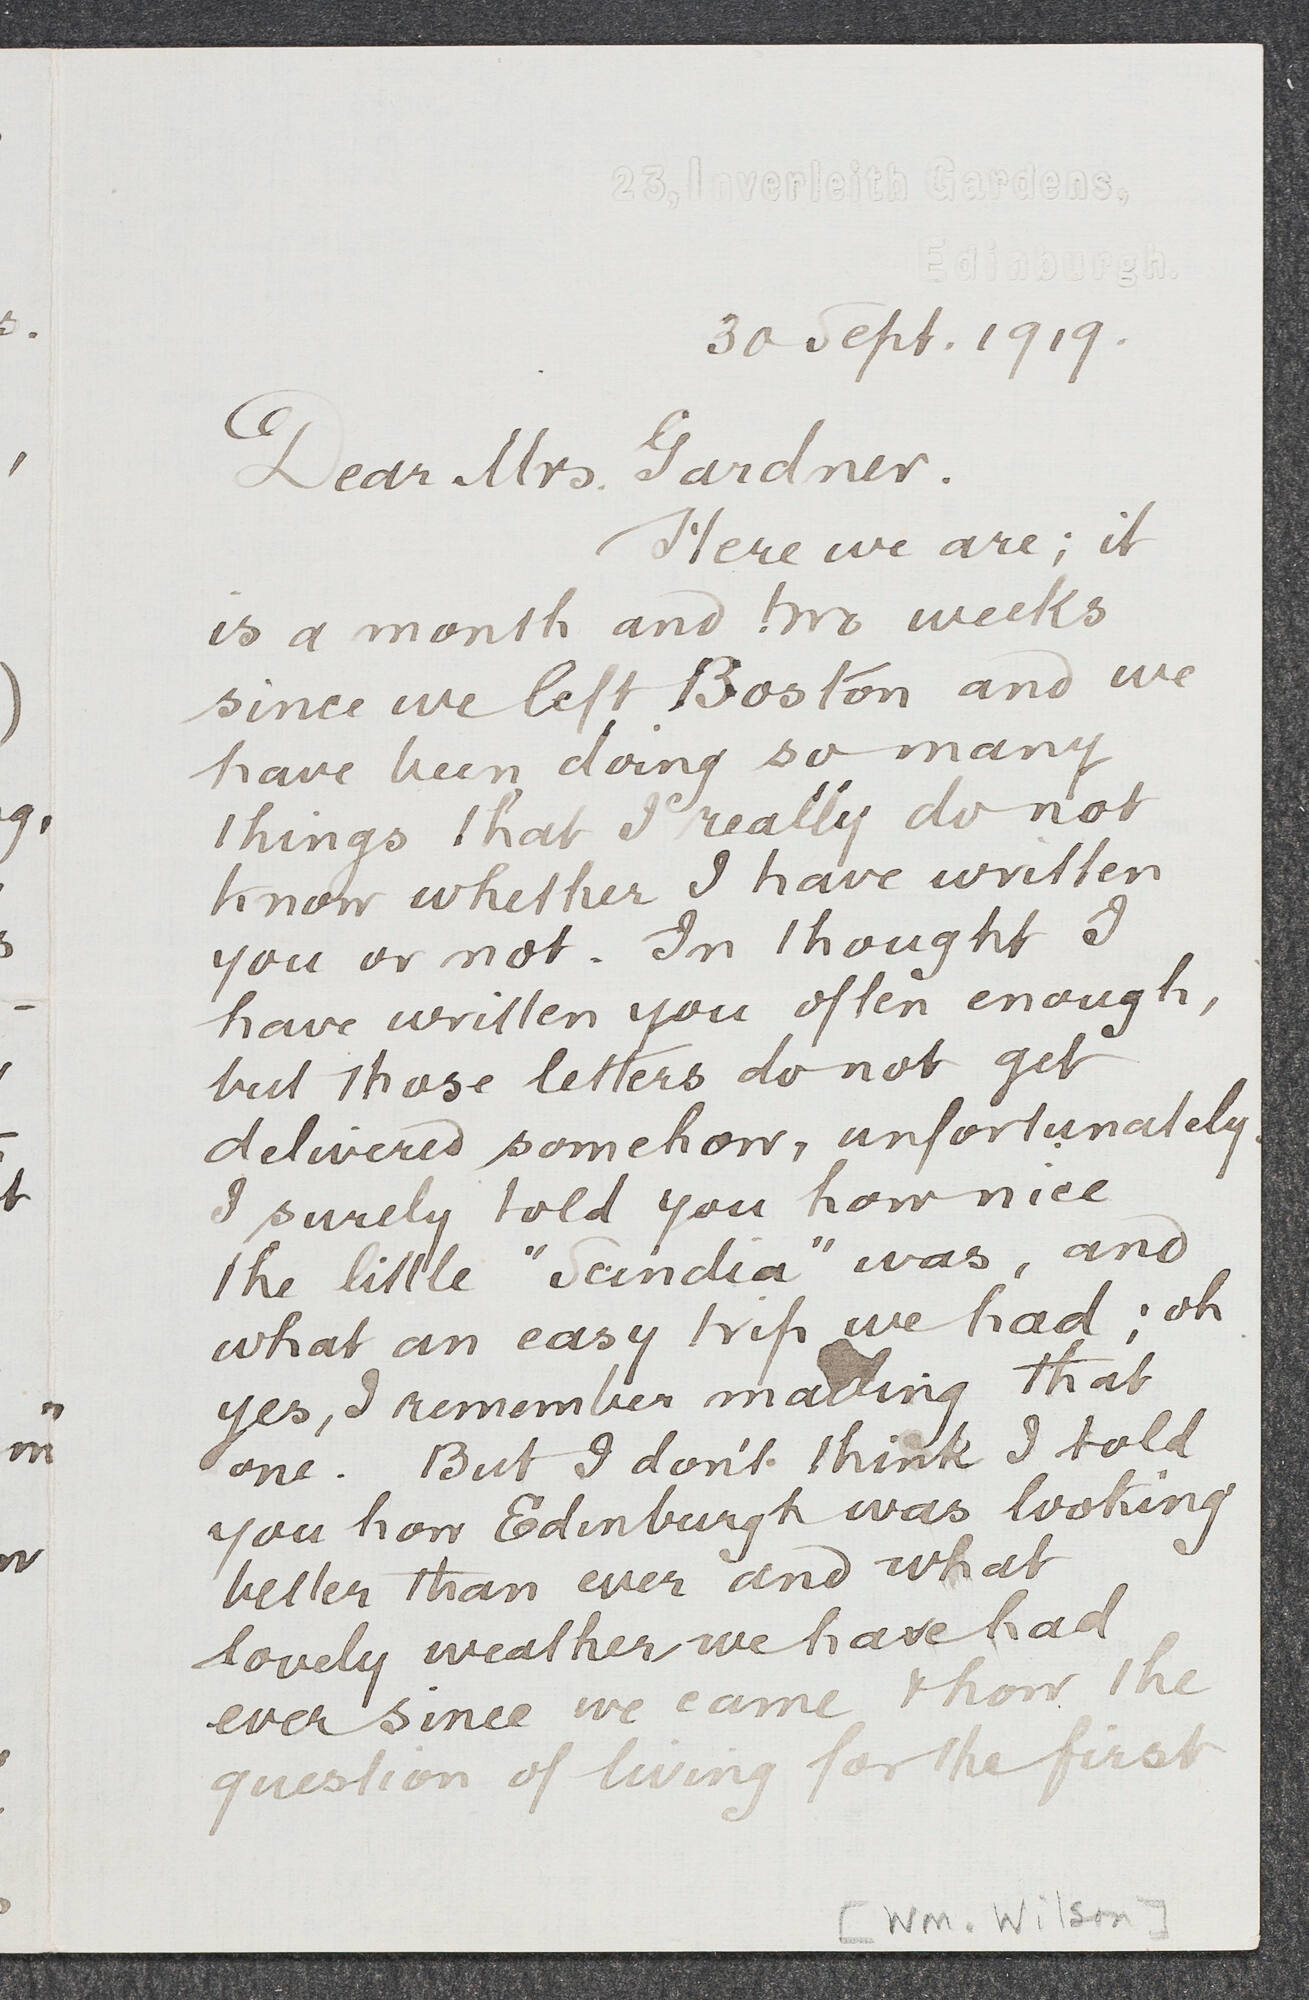 23, Inverleith Gardens,
Edinburgh.
30 Sept. 1919.
Dear Mrs. Gardner.
Here we are; it
is a month and two weeks
since we left Boston and we
have been doing so many
things that I really do not
know whether I have written
you or not. In thought I
have written you often enough,
but those letters do not get
delivered somehow, unfortunately.
I surely told you how nice
the little "Scindia" was, and
what an easy trip we had; oh
yes, I remember mailing that
one. But I don't think I told
you how Edinburgh was looking
better than ever and what
lovely weather we have had
ever since we came & how the
question of living for the first
[Wm. Wilson]